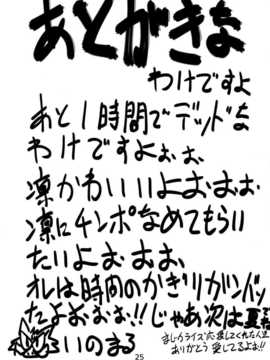 あとがきな
わけですよ
あと1時間でデッドな
わけですよぉぉ、
凛かわいいよおぉおぉ
凛にチンポなめてもらい
たいよぉおぉおぉ、
オレは時間のかぎりガンバッ
たよおぉおぉ!!じゃあ次は夏
るいのまる
ましかライズ応援してくれた人達
ありがとう 愛してるよぉ!!
25